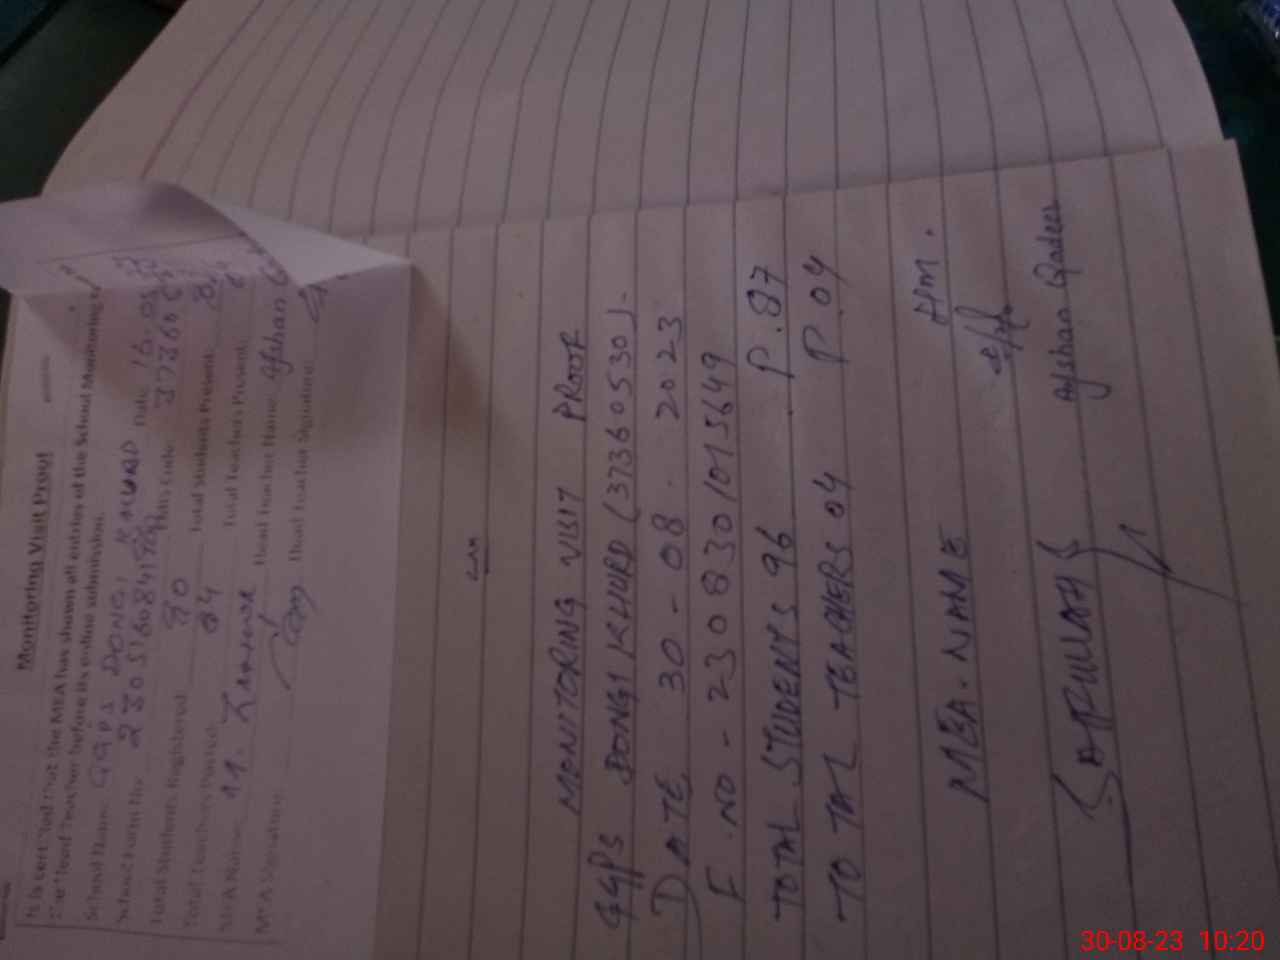 Monitoring Visit Proof
It is certified that the MEA has shown all entries of the School Monitoring
the Head Teacher before its online submission.
School Name: GGPS DONGI KHURD Date 16-05-
School Form No. Emis Code 373605
Total Students Registered 90 Total Students Present
Total Teachers Posted 04 Total Teachers Present
MEA Name M. Head Teacher Name Afshan
MEA Signature Head Teacher Signature
MONITORING VISIT PROOF
GGPS DONGI KHURD (37360530)-
DATE 30-08-2023
F.NO - 230830 1015649
TOTAL STUDENTS 96 P.87
TOTAL TEACHERS 04 P.04
MEA.NAME HM.
SAFIULLAH Afshan Qadeer
30-08-23 10:20